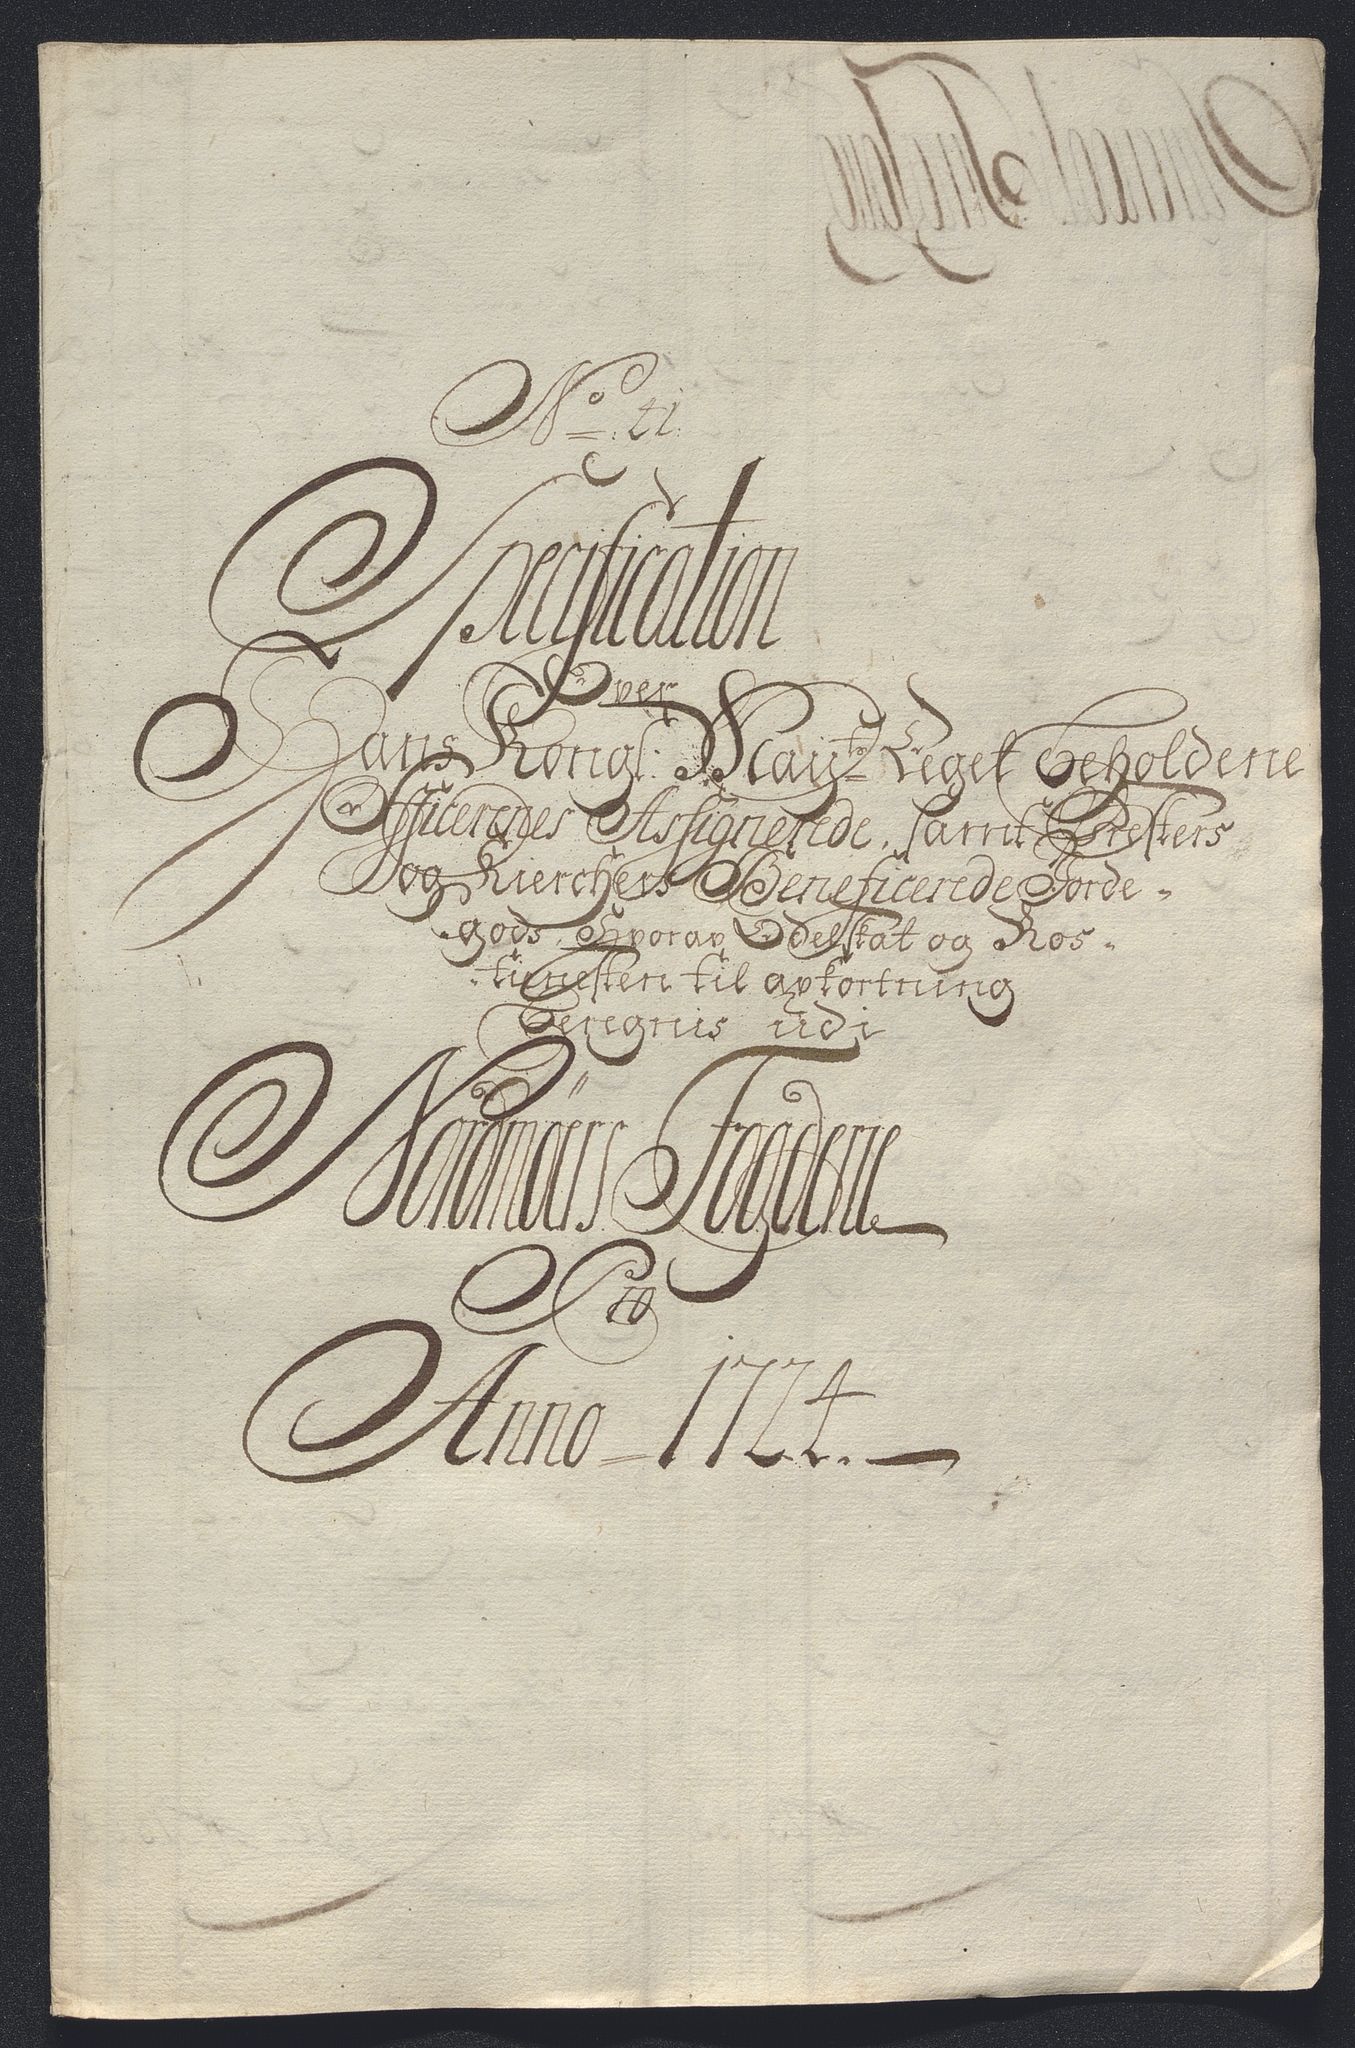 No: 21.
Specification
Over
Hans Kongl: Mayts Eeget beholdene
Officerenes Assignerede, samt Presters
og Kierchers Beneficerede Jorde-
gods, Hvorav Odelskat og Ros-
tienesten til avkortning
beregnis udi
Nordmöers Fogderie
Pro
Anno = 1724.